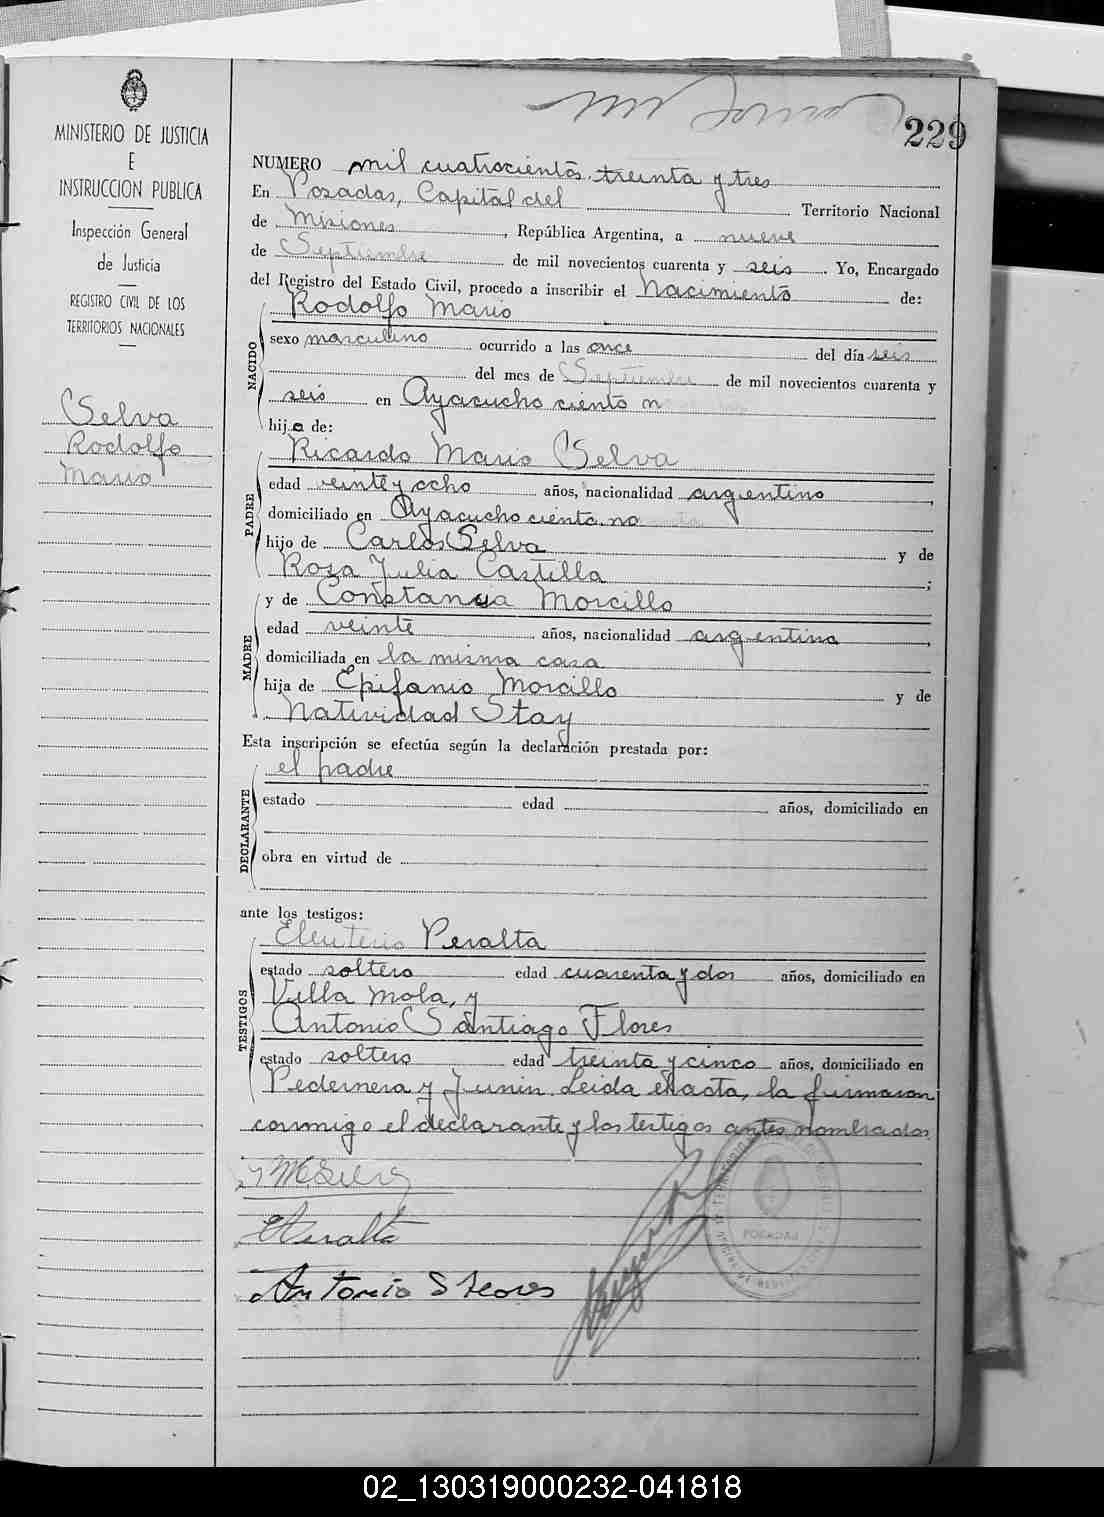 229
MINISTERIO DE JUSTICIA
E
INSTRUCCION PUBLICA
Inspección General
de Justicia
REGISTRO CIVIL DE LOS
TERRITORIOS NACIONALES
Selva
Rodolfo
Mario
NUMERO mil cuatrocientos treinta y tres
En Posadas, Capital del Territorio Nacional
de Misiones, República Argentina, a nueve
de Septiembre de mil novecientos cuarenta y seis. Yo, Encargado
del Registro del Estado Civil, procedo a inscribir el Nacimiento de:
NACIDO
Rodolfo Mario
sexo masculino ocurrido a las once del día seis
del mes de Septiembre de mil novecientos cuarenta y
seis en Ayacucho ciento
hijo de:
PADRE
Ricardo Mario Selva
edad veinte y ocho años, nacionalidad argentino
domiciliado en Ayacucho ciento
hijo de Carlos Selva y de
Rosa Julia Castilla;
MADRE
y de Constancia Morcillo
edad veinte años, nacionalidad argentina
domiciliada en la misma casa
hija de Epifanio Morcillo y de
Natividad Stay
Esta inscripción se efectúa según la declaración prestada por:
DECLARANTE
el padre
estado edad años, domiciliado en
obra en virtud de
ante los testigos:
TESTIGOS
Eleuterio Peralta
estado soltero edad cuarenta y dos años, domiciliado en
Villa Mola, y
Antonio Santiago Flores
estado soltero edad treinta y cinco años, domiciliado en
Pedernera y Junin. Leida el acta, la firmaron
conmigo el declarante y los testigos antes nombrados
Peralta
Antonio S Flores
POSADAS
02_130319000232-041818